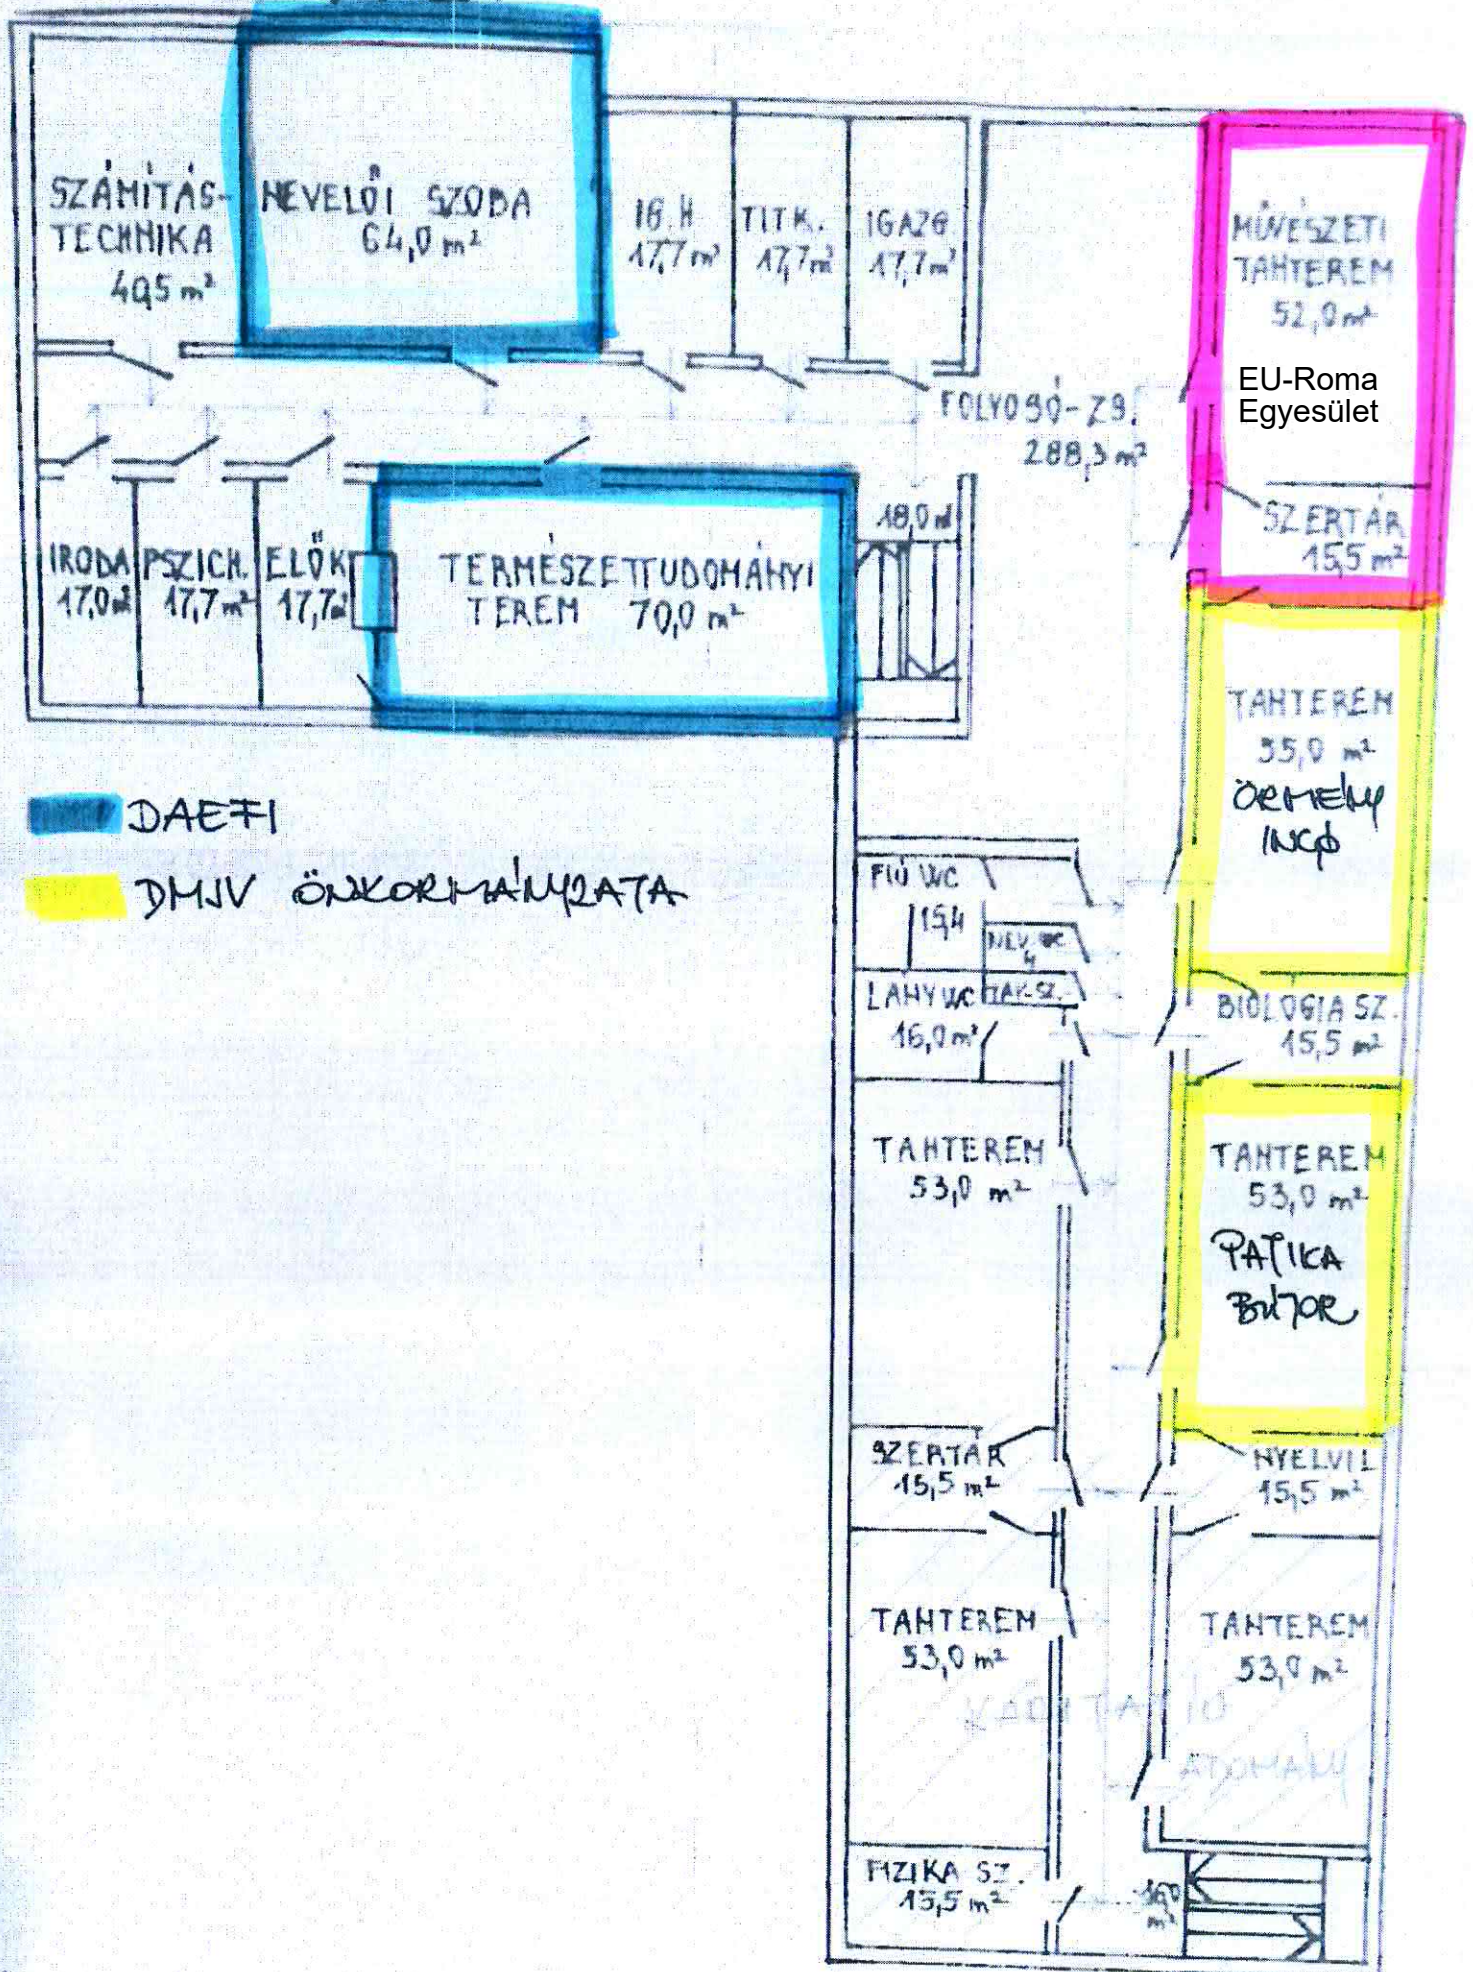 SZÁMÍTÁS-
TECHNIKA
40,5 m²
NEVELŐI SZOBA
64,0 m²
IG. H
17,7 m²
TITK.
17,7 m²
IGAZG.
17,7 m²
MŰVÉSZETI
TANTEREM
52,0 m²
EU-Roma
Egyesület
FOLYOSÓ-ZS.
288,3 m²
SZERTÁR
15,5 m²
18,0 m²
IRODA
17,0 m²
PSZICH.
17,7 m²
ELŐK
17,7 m²
TERMÉSZETTUDOMÁNYI
TEREM 70,0 m²
TANTEREM
55,0 m²
ÖRMÉNY
INGÓ
DAEFI
DMJV ÖNKORMÁNYZATA
FIÚ WC
15,4
NEV. WC
4
LÁNY WC
16,0 m²
TAK. SZ.
BIOLÓGIA SZ.
15,5 m²
TANTEREM
53,0 m²
TANTEREM
53,0 m²
PATIKA
BÚTOR
SZERTÁR
15,5 m²
NYELVI L
15,5 m²
TANTEREM
53,0 m²
TANTEREM
53,0 m²
ADOMÁNY
FIZIKA SZ.
15,5 m²